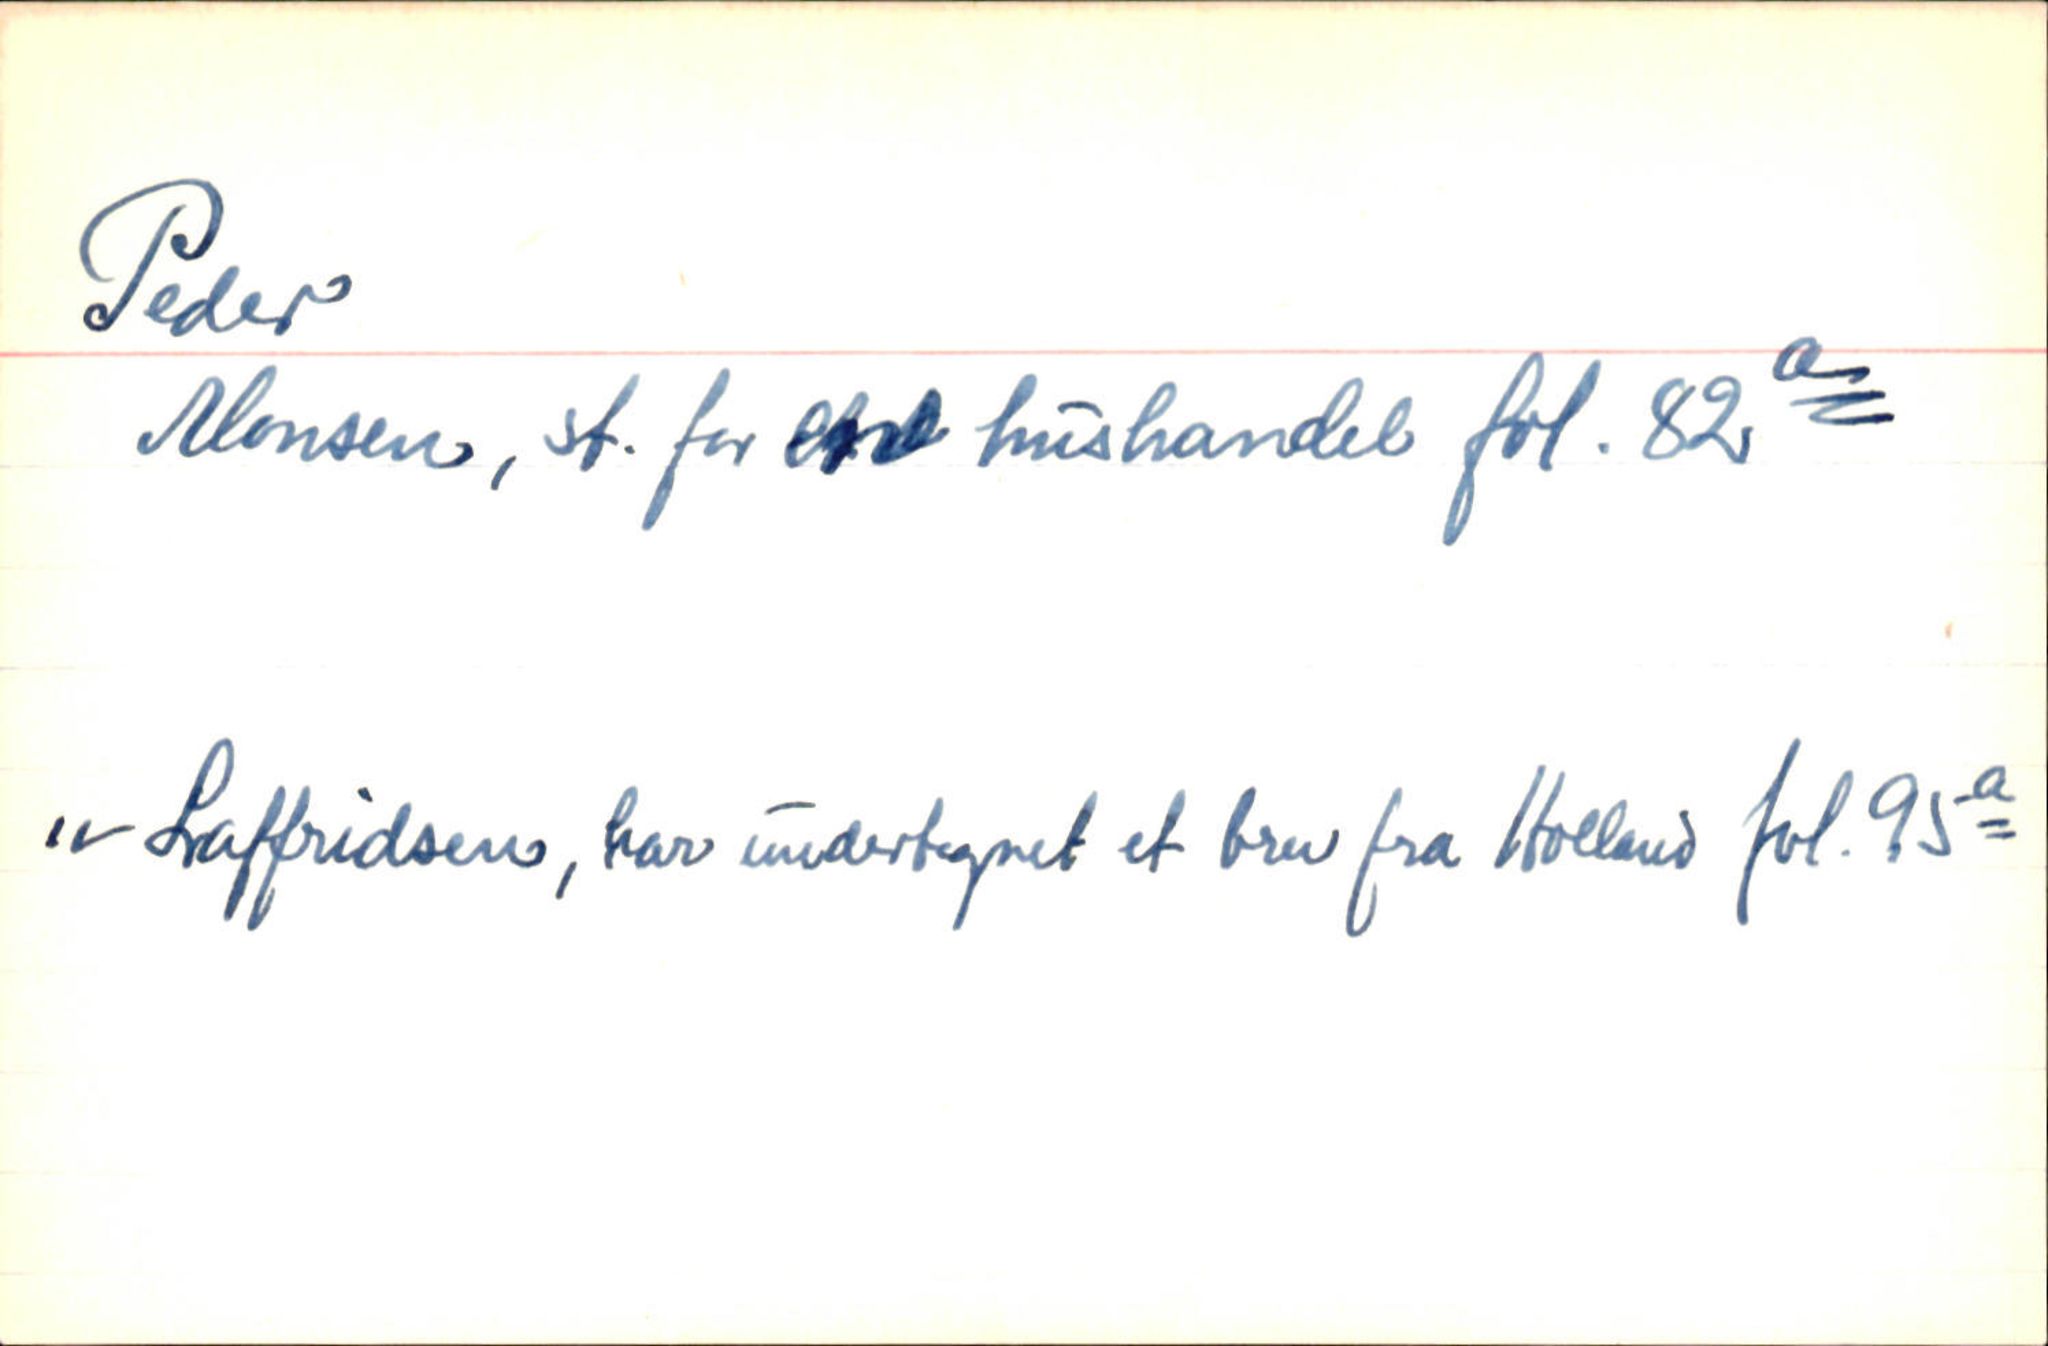 Peder
Monsen, st. for hushandel fol. 82a
"- Laffridsen, har undertegnet et brev fra Holland fol. 95a